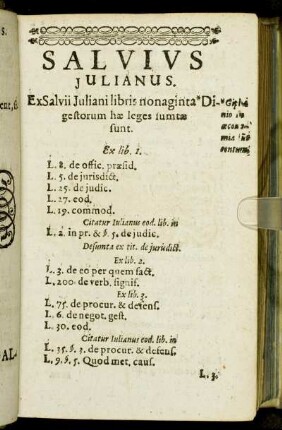 SALVIVS
JULIANUS.
Ex Salvii Juliani libris nonaginta * Di-
gestorum hæ leges sumtæ
sunt.
Ex lib. 1.
L. 8. de offic. præsid.
L. 5. de jurisdict.
L. 25. de judic.
L. 27. eod.
L. 19. commod.
Citatur Iulianus eod. lib. in
L. 2. in pr. & §. 5. de judic.
Desumta ex tit. de jurisdict.
Ex lib. 2.
L. 3. de eo per quem fact.
L. 200. de verb. signif.
Ex lib. 3.
L. 75. de procur. & defens.
L. 6. de negot. gest.
L. 30. eod.
Citatur Iulianus eod. lib. in
L. 35. §. 3. de procur. & defens.
L. 9. §. 5. Quod met. caus.
L. 3.